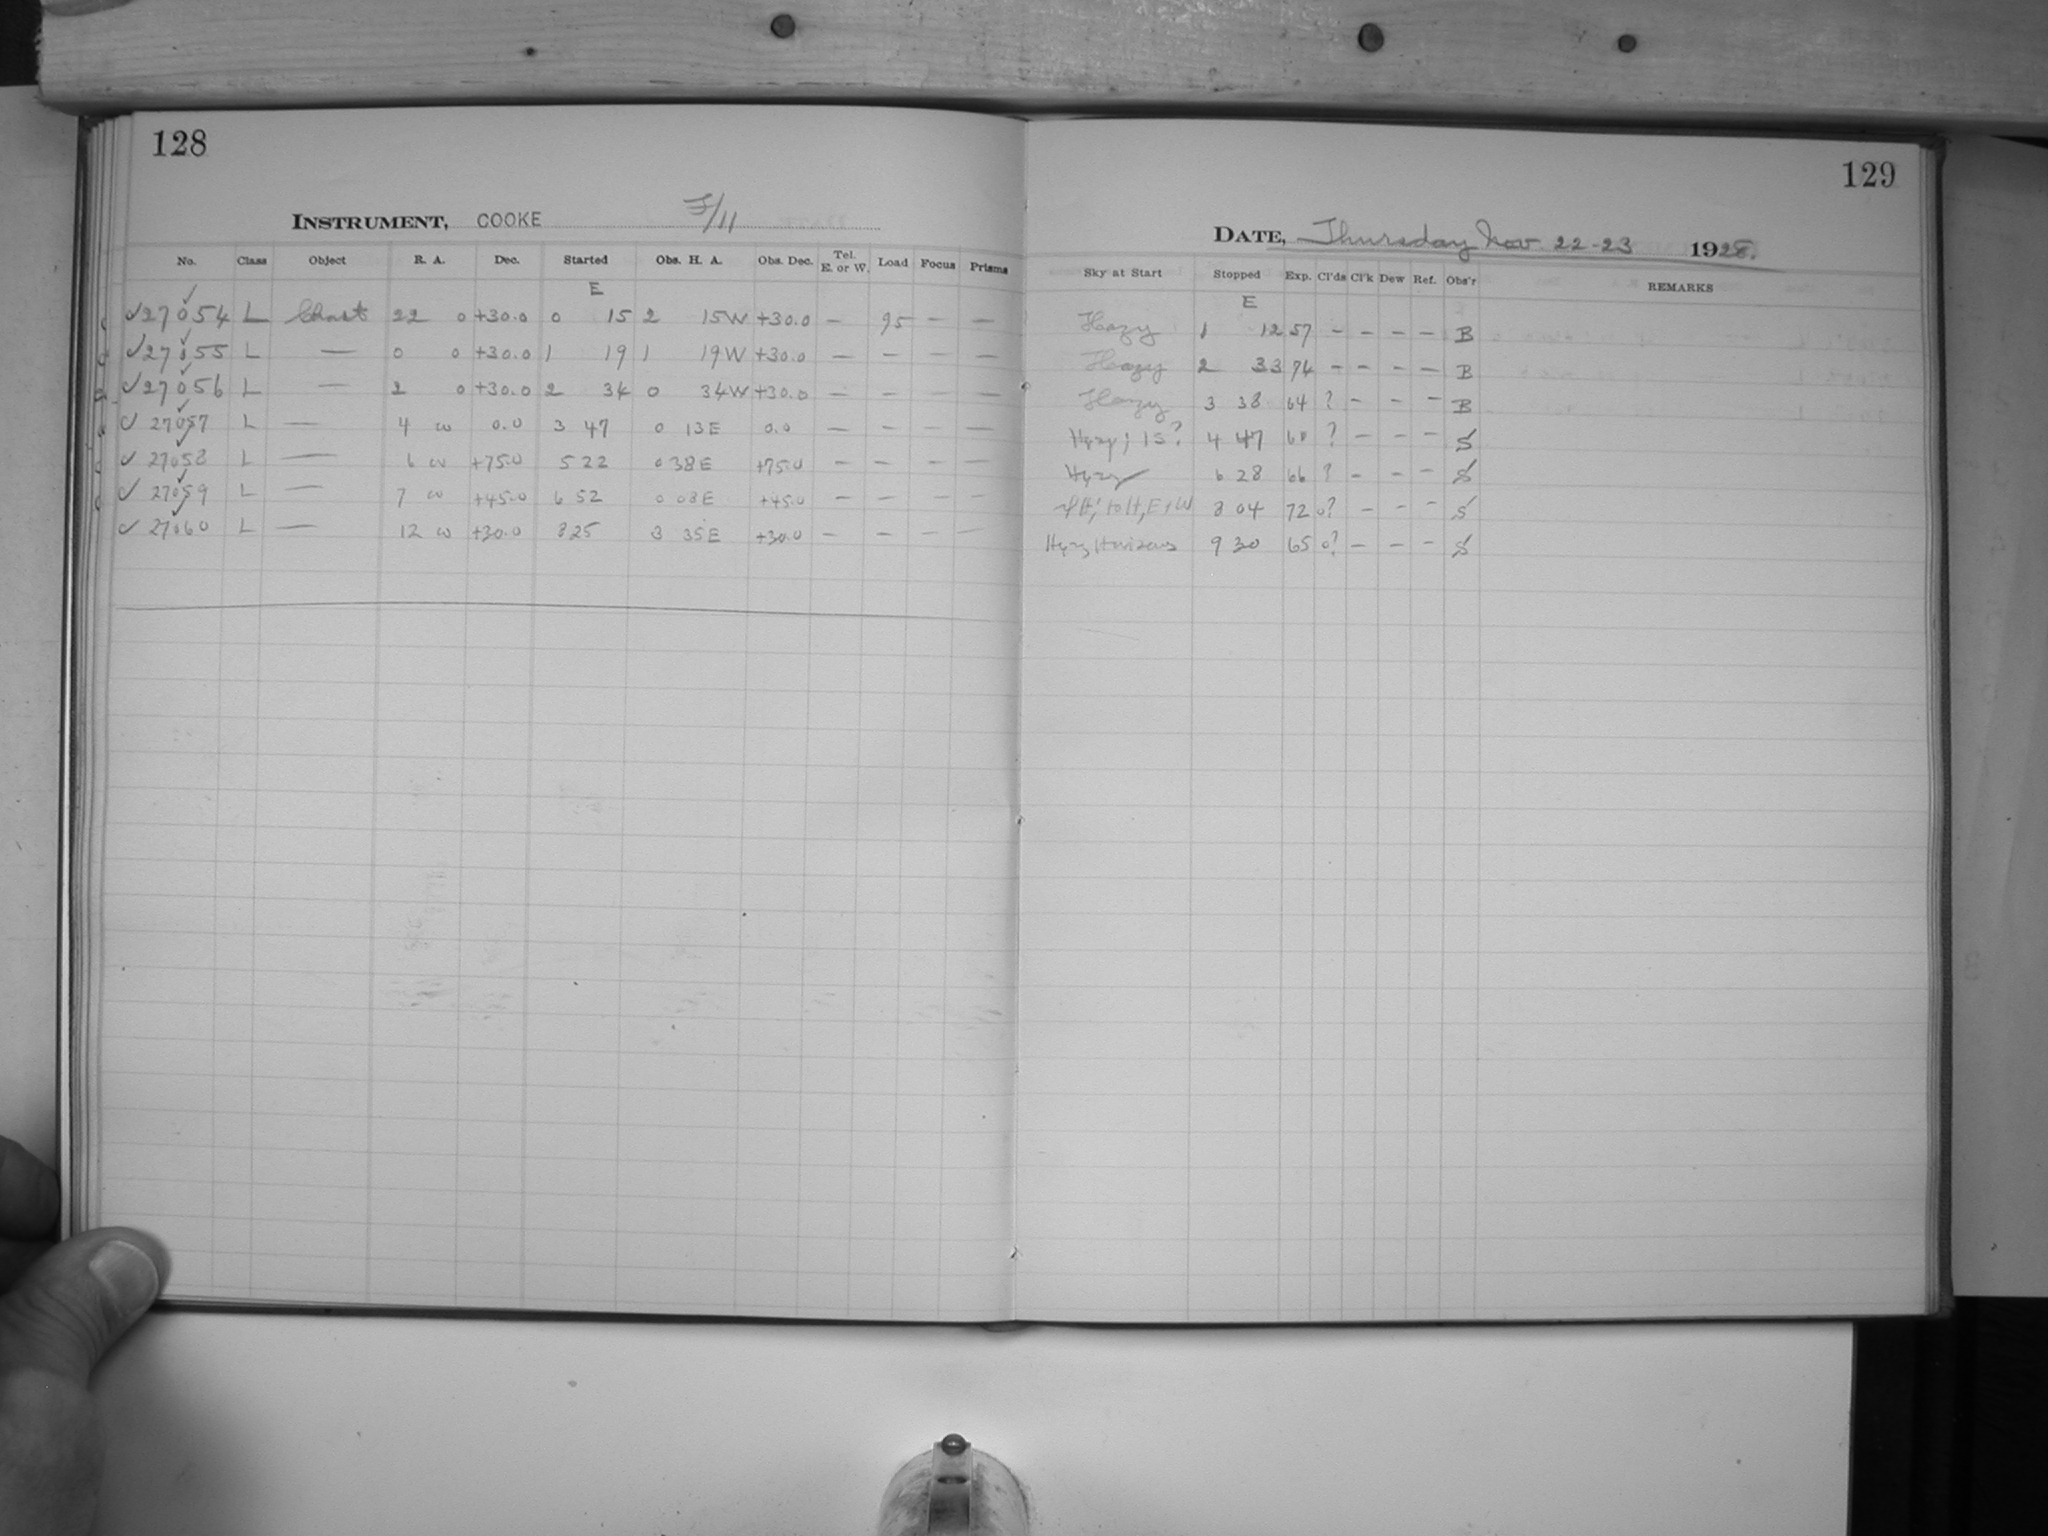 128
INSTRUMENT, COOKE F/11
No. Class Object R. A. Dec. Started Obs. H. A. Obs. Dec. Tel. E. or W. Load Focus Prisms
E
✓27054 L Chart 22 0 +30.0 0 15 2 15W +30.0 — 95 — —
✓27055 L — 0 0 +30.0 1 19 1 19W +30.0 — — — —
✓27056 L — 2 0 +30.0 2 34 0 34W +30.0 — — — —
✓27057 L — 4 00 0.0 3 47 0 13E 0.0 — — — —
✓27058 L — 6 00 +75.0 5 22 0 38E +75.0 — — — —
✓27059 L — 7 00 +45.0 6 52 0 08E +45.0 — — — —
✓27060 L — 12 00 +30.0 8 25 3 35E +30.0 — — — —
129
DATE, Thursday Nov 22-23 1928.
Sky at Start Stopped Exp. Cl'ds Cl'k Dew Ref. Obs'r REMARKS
E
Hazy 1 12 57 — — — — B
Hazy 2 33 74 — — — — B
Hazy 3 38 64 ? — — — B
Hazy; 15? 4 47 60 ? — — — S
Hazy 6 28 66 ? — — — S
8 04 72 0? — — — S
Hazy Horizons 9 30 65 0? — — — S